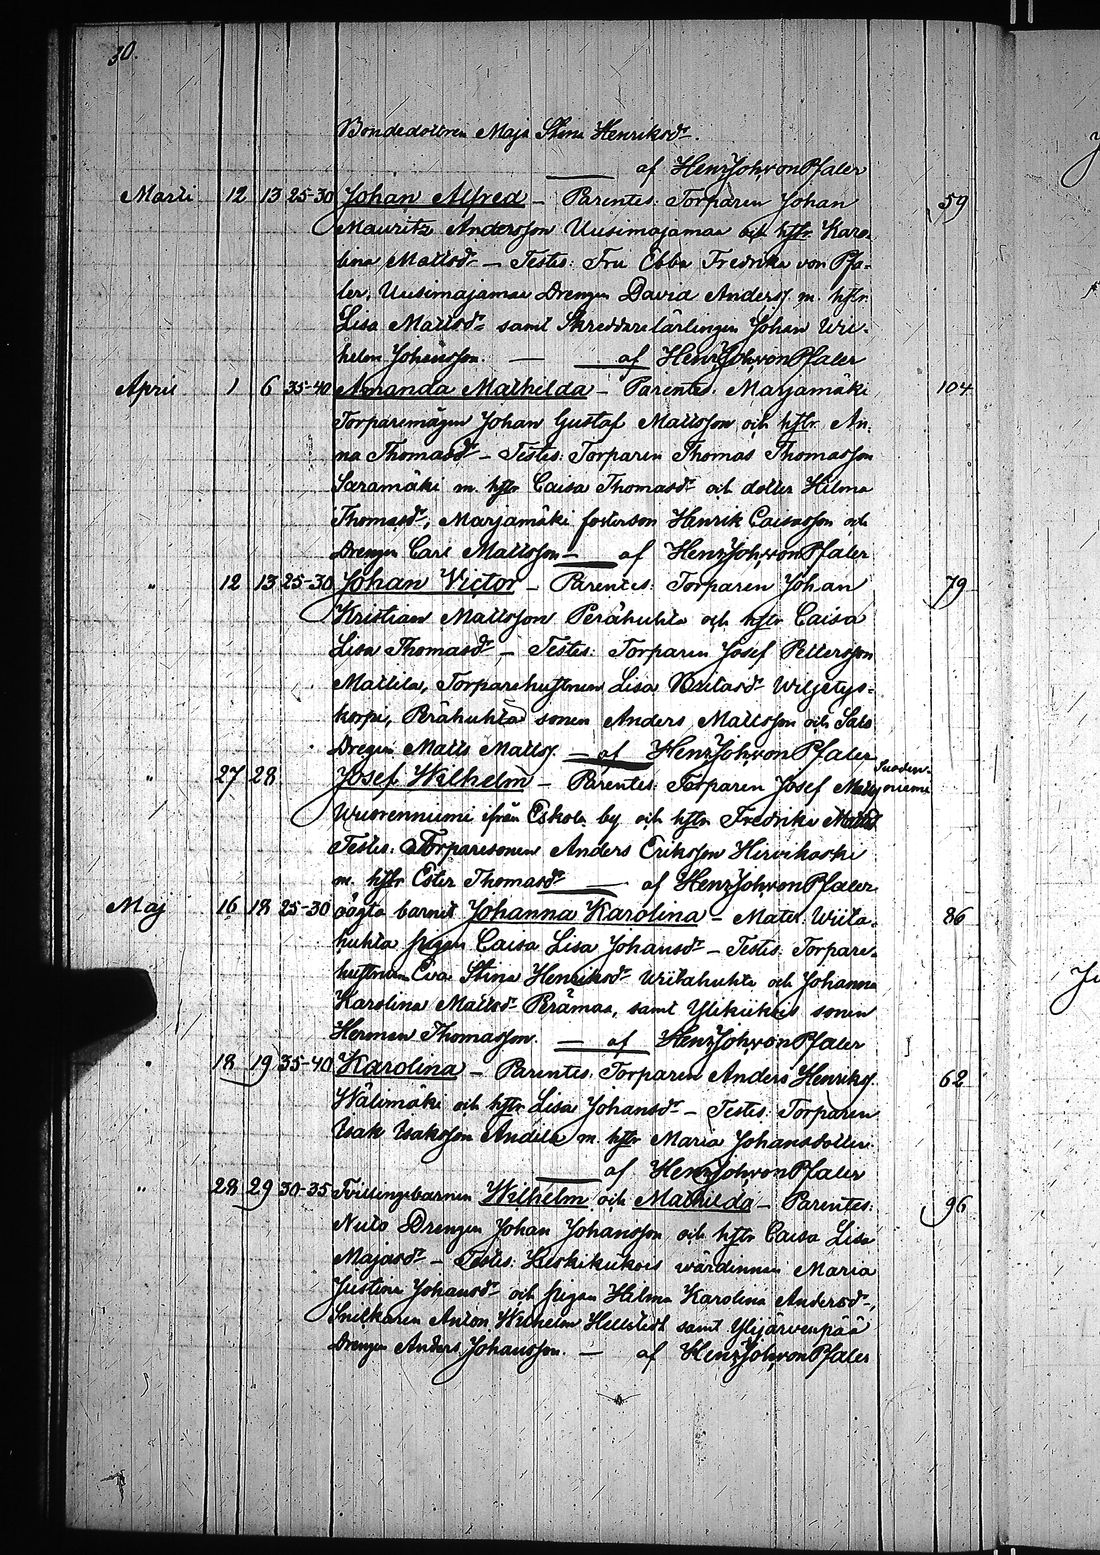 30.
Bondedottren Maja Stina Henriksdr.
af HenrJohvonPfaler
Marti 12 13 25-30 Johan Alfred – Parentes: Torparen Johan 59
Mauritz Andersson Uusimajamaa och hstr Karo-
lina Mattsdr – Testes: Fru Ebba Fredrika von Pfa-
ler, Uusimajamaa Drengen David Anderss. m. hstr
Lisa Mattsdr samt Skreddarelärlingen Johan Wil-
helm Johansson. — af HenrJohvonPfaler
April 1 6 35-40 Amanda Mathilda – Parentes. Marjamäki 104
Torparemågen Johan Gustaf Mattsson och hstr An-
na Thomasdr – Testes: Torparen Thomas Thomasson
Saramäki m. hstr Caisa Thomasdr och dotter Hilma
Thomasdr, Marjamäki fosterson Henrik Caisasson och
Drengen Carl Mattsson – af HenrJohvonPfaler
" 12 13 25-30 Johan Victor – Parentes: Torparen Johan 79
Kristian Mattsson Perähuhta och hstr Caisa
Lisa Thomasdr – Testes: Torparen Josef Pettersson
Mattila, Torparehustrun Lisa Wiljetys-
korpi, Perähuhta sonen Anders Mattsson och Salo
Dregen Matts Mattss. – af HenrJohvonPfaler
" 27 28 Josef Wilhelm – Parentes: Torparen Josef Matts
Wuorenniemi ifrån Eskola by och hstr Fredrika Mattsd
Testes: Torparesonen Anders Eriksson Hirvikoski
m. hstr Ester Thomasdr — af HenrJohvonPfaler
Maj 16 18 25-30 oägta barnet Johanna Karolina – Mater. Wiita- 86
huhta pigan Caisa Lisa Johansdr – Testes: Torpare-
hustrun Eva Stina Henriksdr Wiitahuhta och Johanna
Karolina Mattsdr Perämaa, samt Ylikukois sonen
Herman Thomasson. — af HenrJohvonPfaler
" 18 19 35-40 Karolina – Parentes: Torparen Anders Henrikss. 62
Wälimäki och hstr Lisa Johansdr – Testes: Torparen
Isak Isaksson Andila m. hstr Maria Johansdotter.
af HenrJohvonPfaler
" 28 29 30-35 Tvillingebarnen Wilhelm och Mathilda – Parentes: 96
Drengen Johan Johansson och hstr Caisa Lisa
Majasdr – Testes: Keskikukois wärdinnan Maria
Justina Johansdr och pigan Hilma Karolina Andersdr,
Snilkaren Anton Wilhelm Hellstedt samt Ylijärvenpää
Drengen Anders Johansson. — af HenrJohvonPfaler